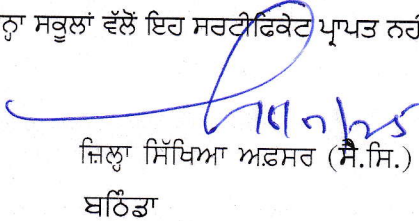 ਨ੍ਹਾ ਸਕੂਲਾਂ ਵੱਲੋਂ ਇਹ ਸਰਟੀਫਿਕੇਟ ਪ੍ਰਾਪਤ ਨਹੀਂ
ਜ਼ਿਲ੍ਹਾ ਸਿੱਖਿਆ ਅਫ਼ਸਰ (ਸੈ.ਸਿ.)
ਬਠਿੰਡਾ